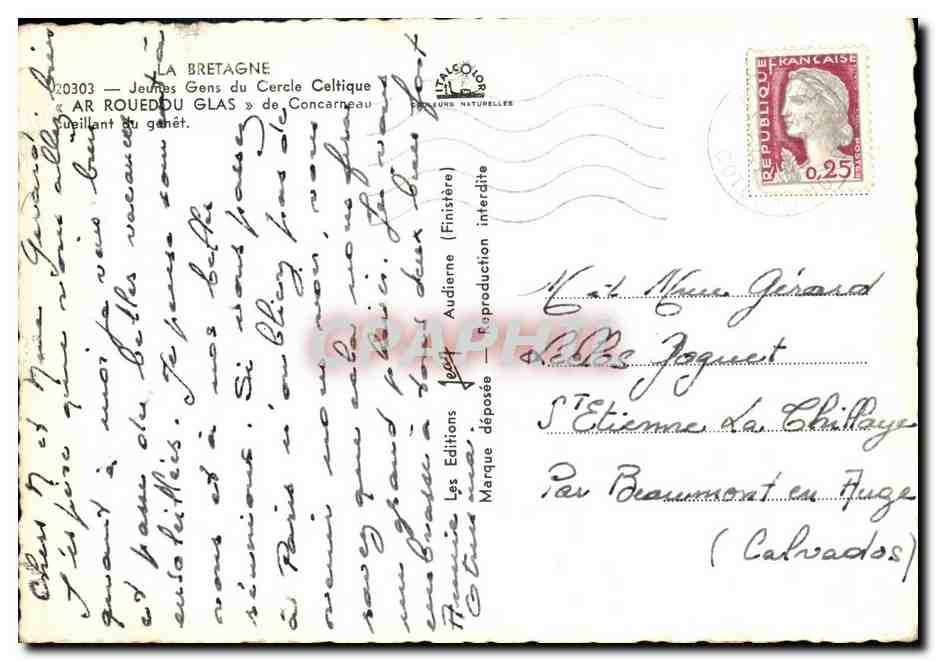 LA BRETAGNE
20303 — Jeunes Gens du Cercle Celtique
« AR ROUEDOU GLAS » de Concarneau
cueillant du genêt.
ITALCOLOR
COULEURS NATURELLES
REPUBLIQUE FRANCAISE
0,25
Les Editions Jean Audierne (Finistère)
Marque déposée — Reproduction interdite
Chers M et Mme Gérard.
J'espère que vous allez bien
quant à moi je vais bien
et passe de belles vacances
ensoleillées. Je pense souvent à
vous et à nos belles
réunions. Si vous passez
à Paris n'oubliez pas de
venir nous voir, vous
savez que cela nous fera
un grand plaisir. Je vous
embrasse à tous deux bien fort
Annie
M et Mme Gérard
Jaquet
St Etienne La Thillaye
Par Beaumont en Auge
(Calvados)
CPAPHIL